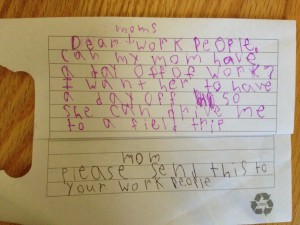 moms
Dear work people,
can my mom have
a day off of work?
I want her to have
a day off so
she can drive me
to a field trip
mom
please send this to
your work people